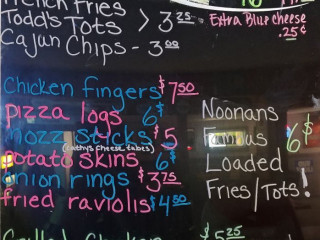 French Fries
Todd's Tots > 3 25 = Extra Blue cheese .25¢
Cajun Chips - 3 00
Chicken fingers $7 50
pizza logs 6$
mozz sticks $5
(Kathy's cheese tables)
potato skins 6$
onion rings $3 75
fried raviolis $4 50
Noonans
Famous
Loaded 6$
Fries/Tots!
$5 25